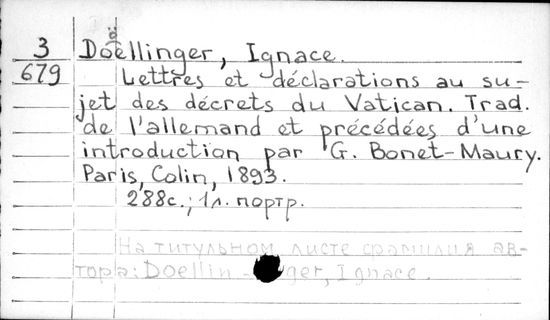 3
679
Doellinger, Ignace.
Lettres et déclarations au su-
jet des décrets du Vatican. Trad.
de l'allemand et précédées d'une
introduction par G. Bonet-Maury.
Paris, Colin, 1893.
288с.; 1л. портр.
На титульном листе фамилия ав-
тора: Doellin-ger, Ignace.